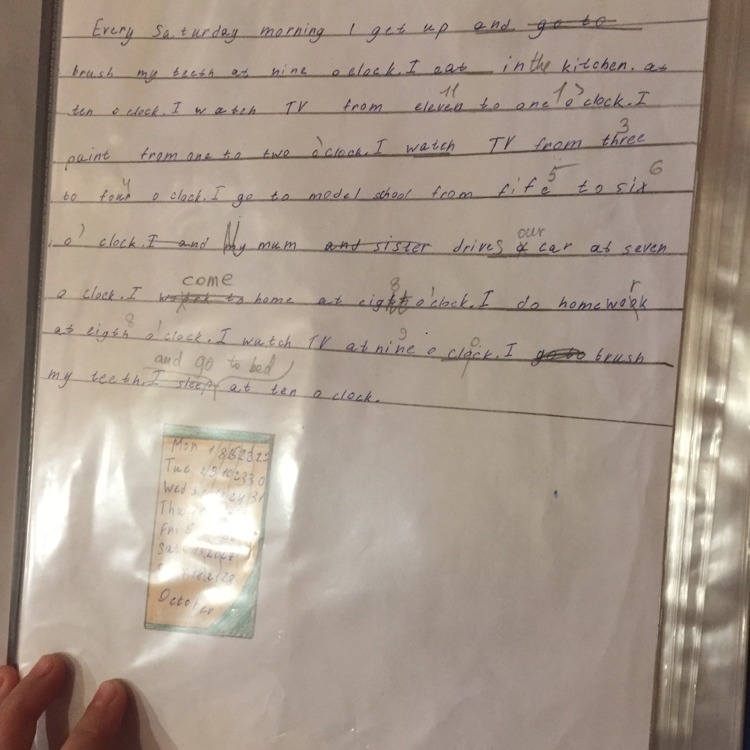 Every Saturday morning I get up and go to
brush my teeth at nine o clock. I eat in the kitchen. at
11 1 '
ten o clock. I watch TV from eleven to one o clock. I
3
paint from one to two o'clock. I watch TV from three
4 5 6
to four o clock. I go to model school from fife to six
our
o' clock. I and My mum and sister drives a car at seven
come 8 r
o clock. I home at eight o'clock. I do homewook
8 9 o
at eigth o'clock. I watch TV at nine o clock. I go to brush
and go to bed
my teeth. I sleep at ten o clock.
Mon 1/8/
Tue 2/9/
Wed
Thu
Fri
October